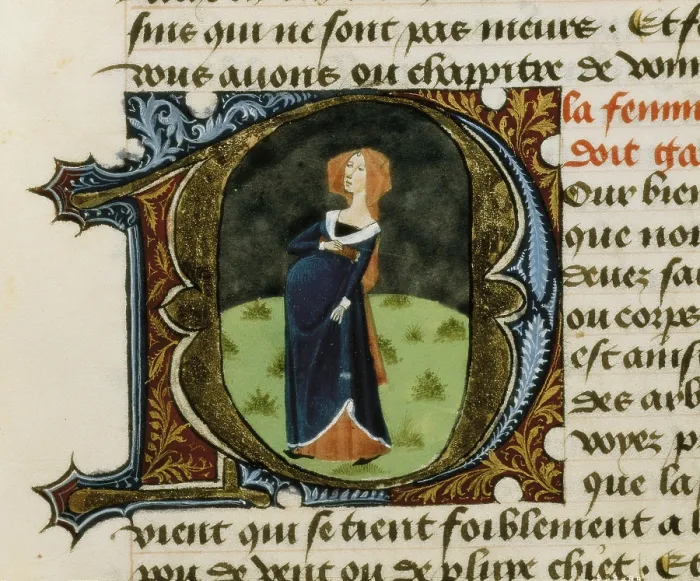 fruis qui ne sont pas meurs . Et se
vous auons ou chappitre de vom
la femm
doit gar
Pour bien
que nou
deuez sa
ou corps
est ainsi
des arb
voyez p
que la
vient qui se tient foiblement a l
pou de vent ou de pluye chiet . Et